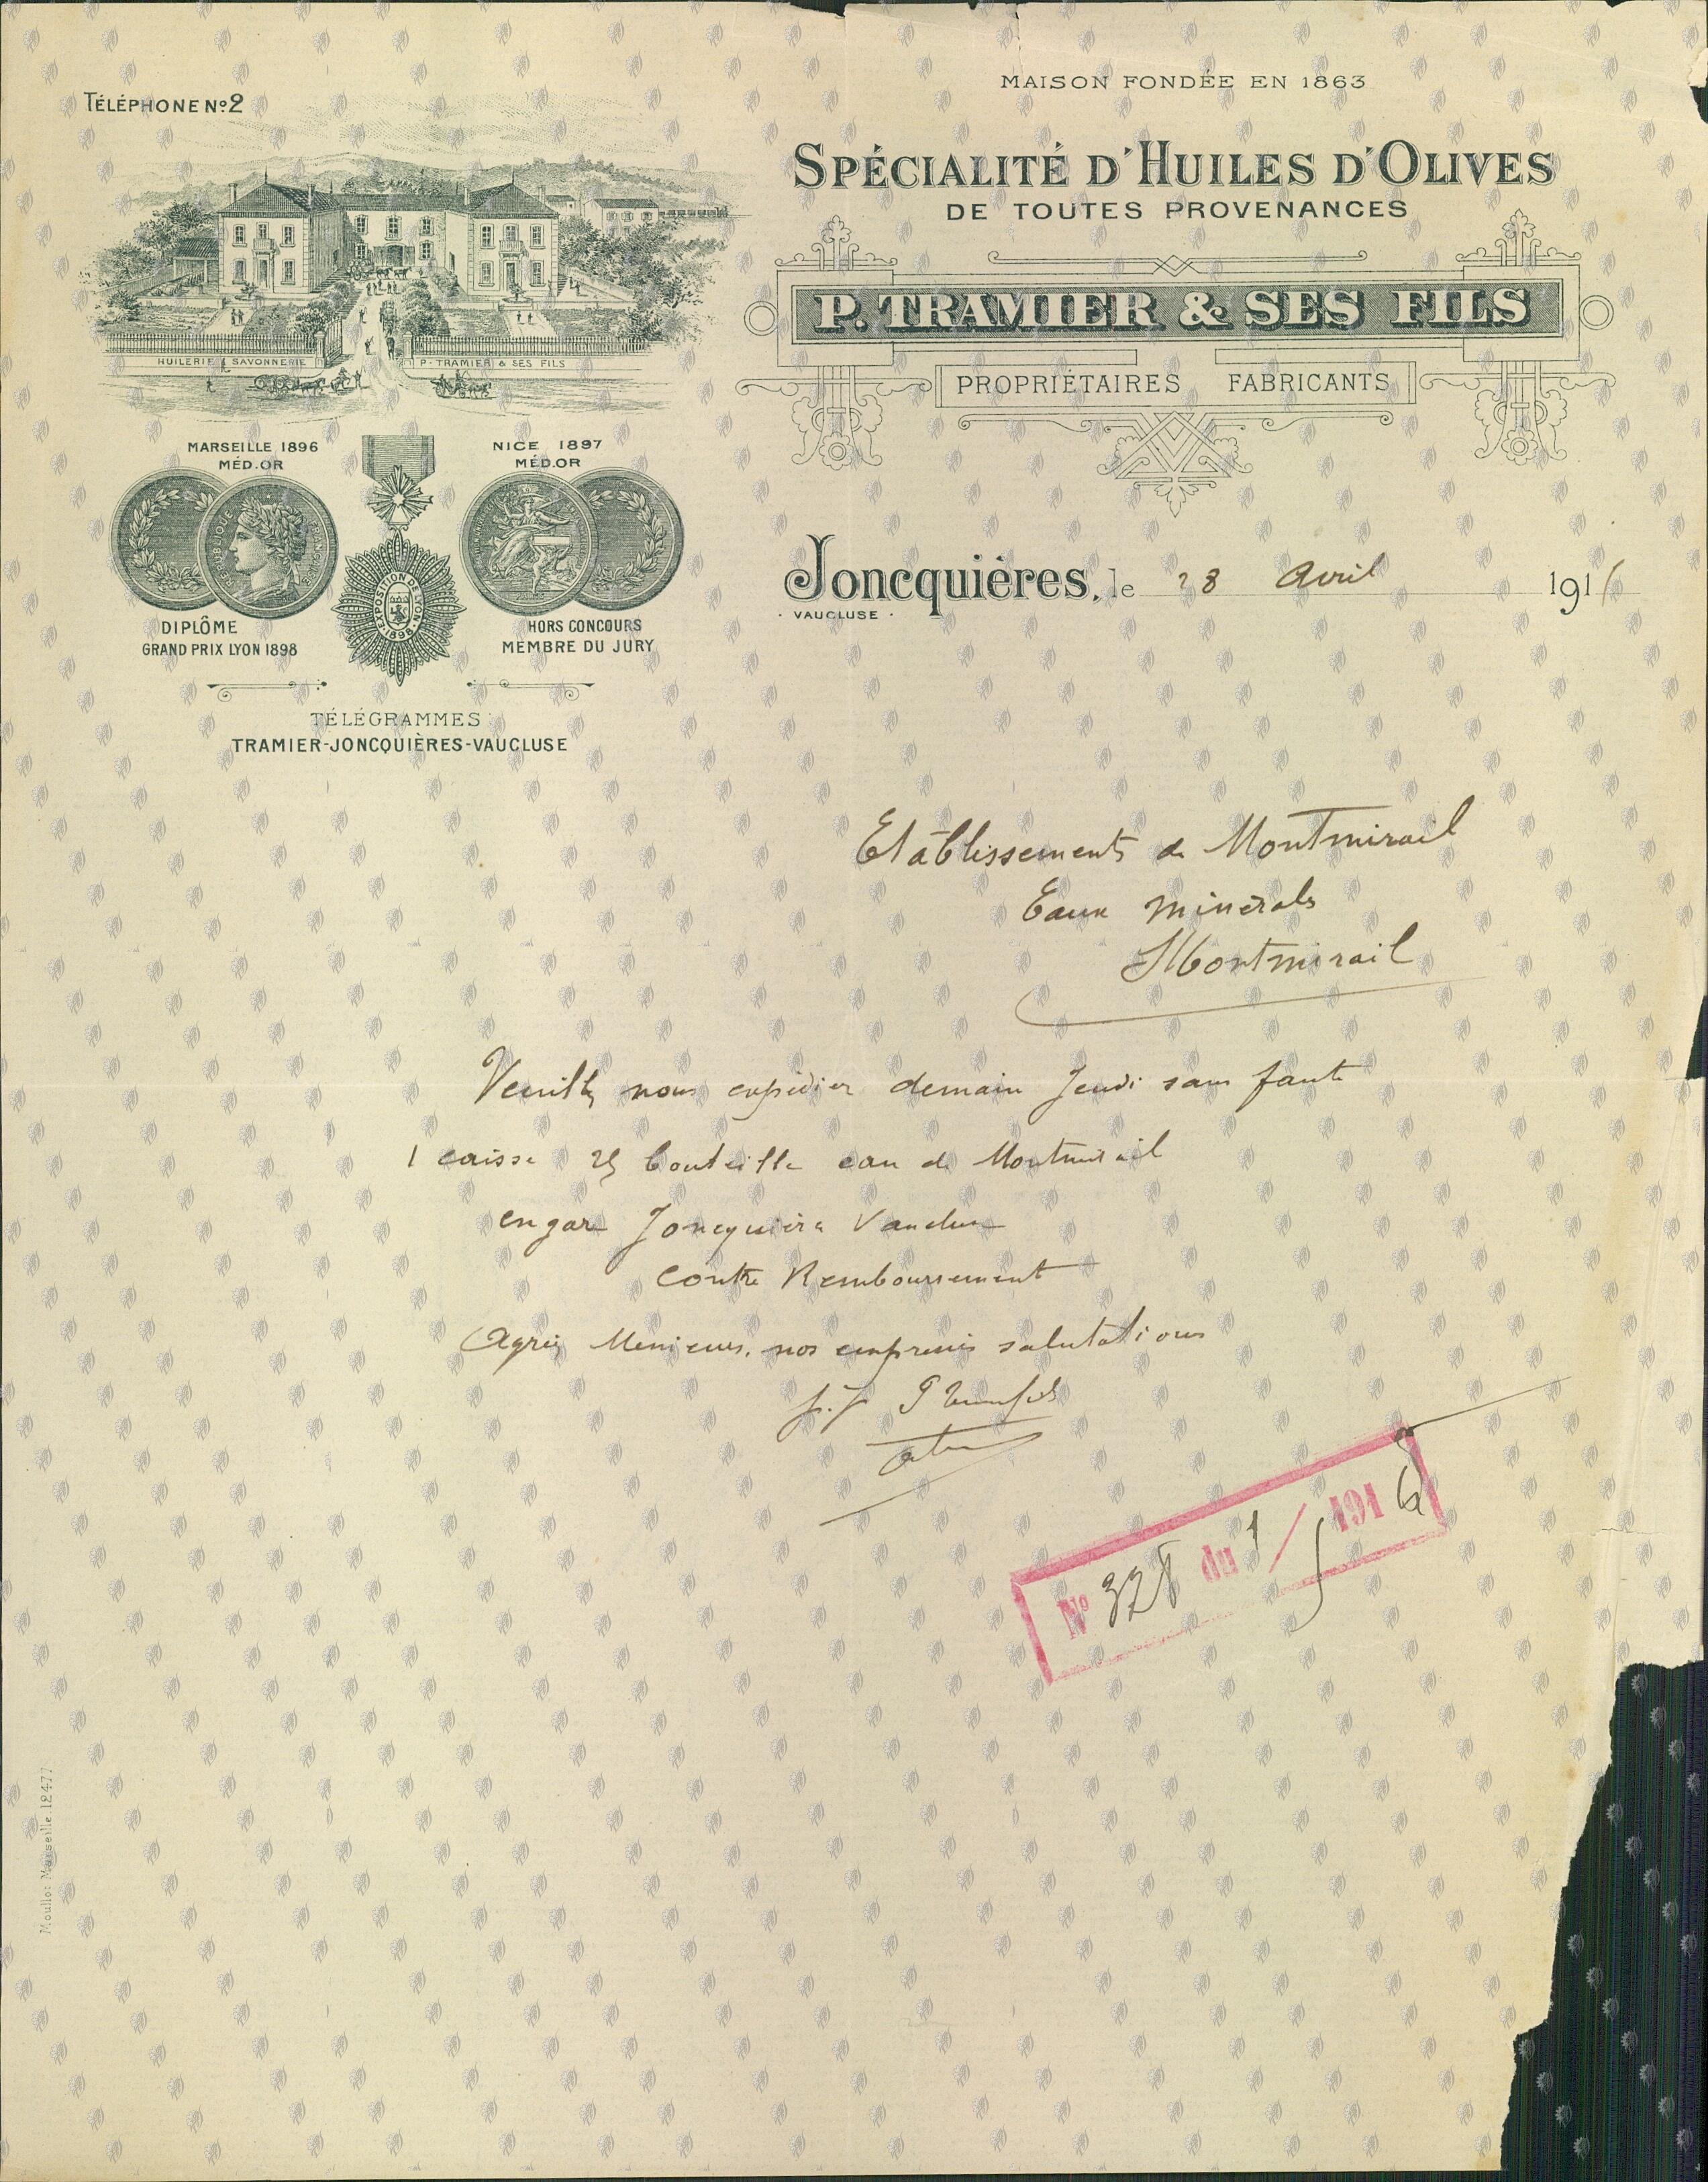 TÉLÉPHONE Nº 2
MAISON FONDÉE EN 1863
SPÉCIALITÉ D'HUILES D'OLIVES
DE TOUTES PROVENANCES
P. TRAMIER & SES FILS
PROPRIÉTAIRES FABRICANTS
HUILERIE & SAVONNERIE P. TRAMIER & SES FILS
MARSEILLE 1896
MÉD. OR
NICE 1897
MÉD. OR
RÉPUBLIQUE FRANÇAISE
EXPOSITION DE LYON 1898
DIPLÔME
GRAND PRIX LYON 1898
HORS CONCOURS
MEMBRE DU JURY
TÉLÉGRAMMES
TRAMIER-JONCQUIÈRES-VAUCLUSE
Joncquières, le 28 Avril 191
VAUCLUSE
Etablissements de Montmirail
Eaux minerals
Montmirail
Veuillez nous expédier demain Jeudi sans faute
1 caisse 25 bouteille eau de Montmirail
en gare Joncquières Vaucluse
Contre Remboursement
Agréez Messieurs, nos empressés salutations
Nº 328 du 1/5 1916
Moullot Marseille 12477